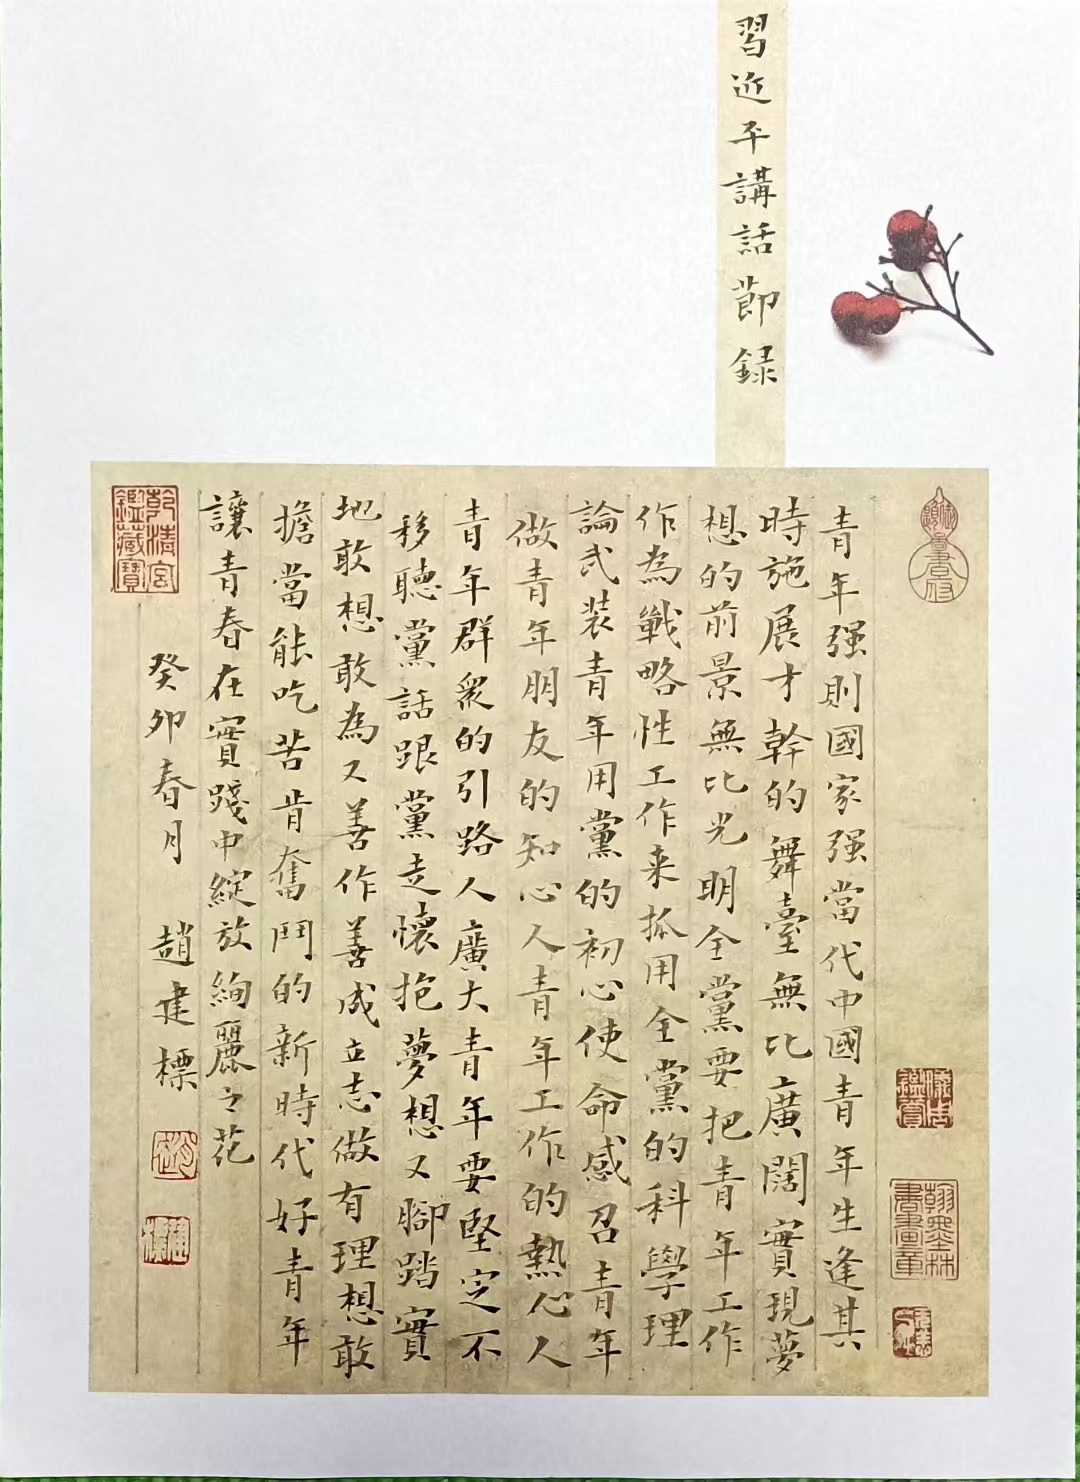 習近平講話節録
青年强則國家强當代中國青年生逢其
時施展才幹的舞臺無比廣闊實現夢
想的前景無比光明全黨要把青年工作
作為戰略性工作来抓用全黨的科學理
論武装青年用黨的初心使命感召青年
做青年朋友的知心人青年工作的熱心人
青年群衆的引路人廣大青年要堅定不
移聽黨話跟黨走懷抱夢想又腳踏實
地敢想敢為又善作善成立志做有理想敢
擔當能吃苦肯奮鬥的新時代好青年
讓青春在實踐中綻放絢麗之花
癸卯春月 趙建標
乾清宮鑑藏寶
翰墨林書畫章